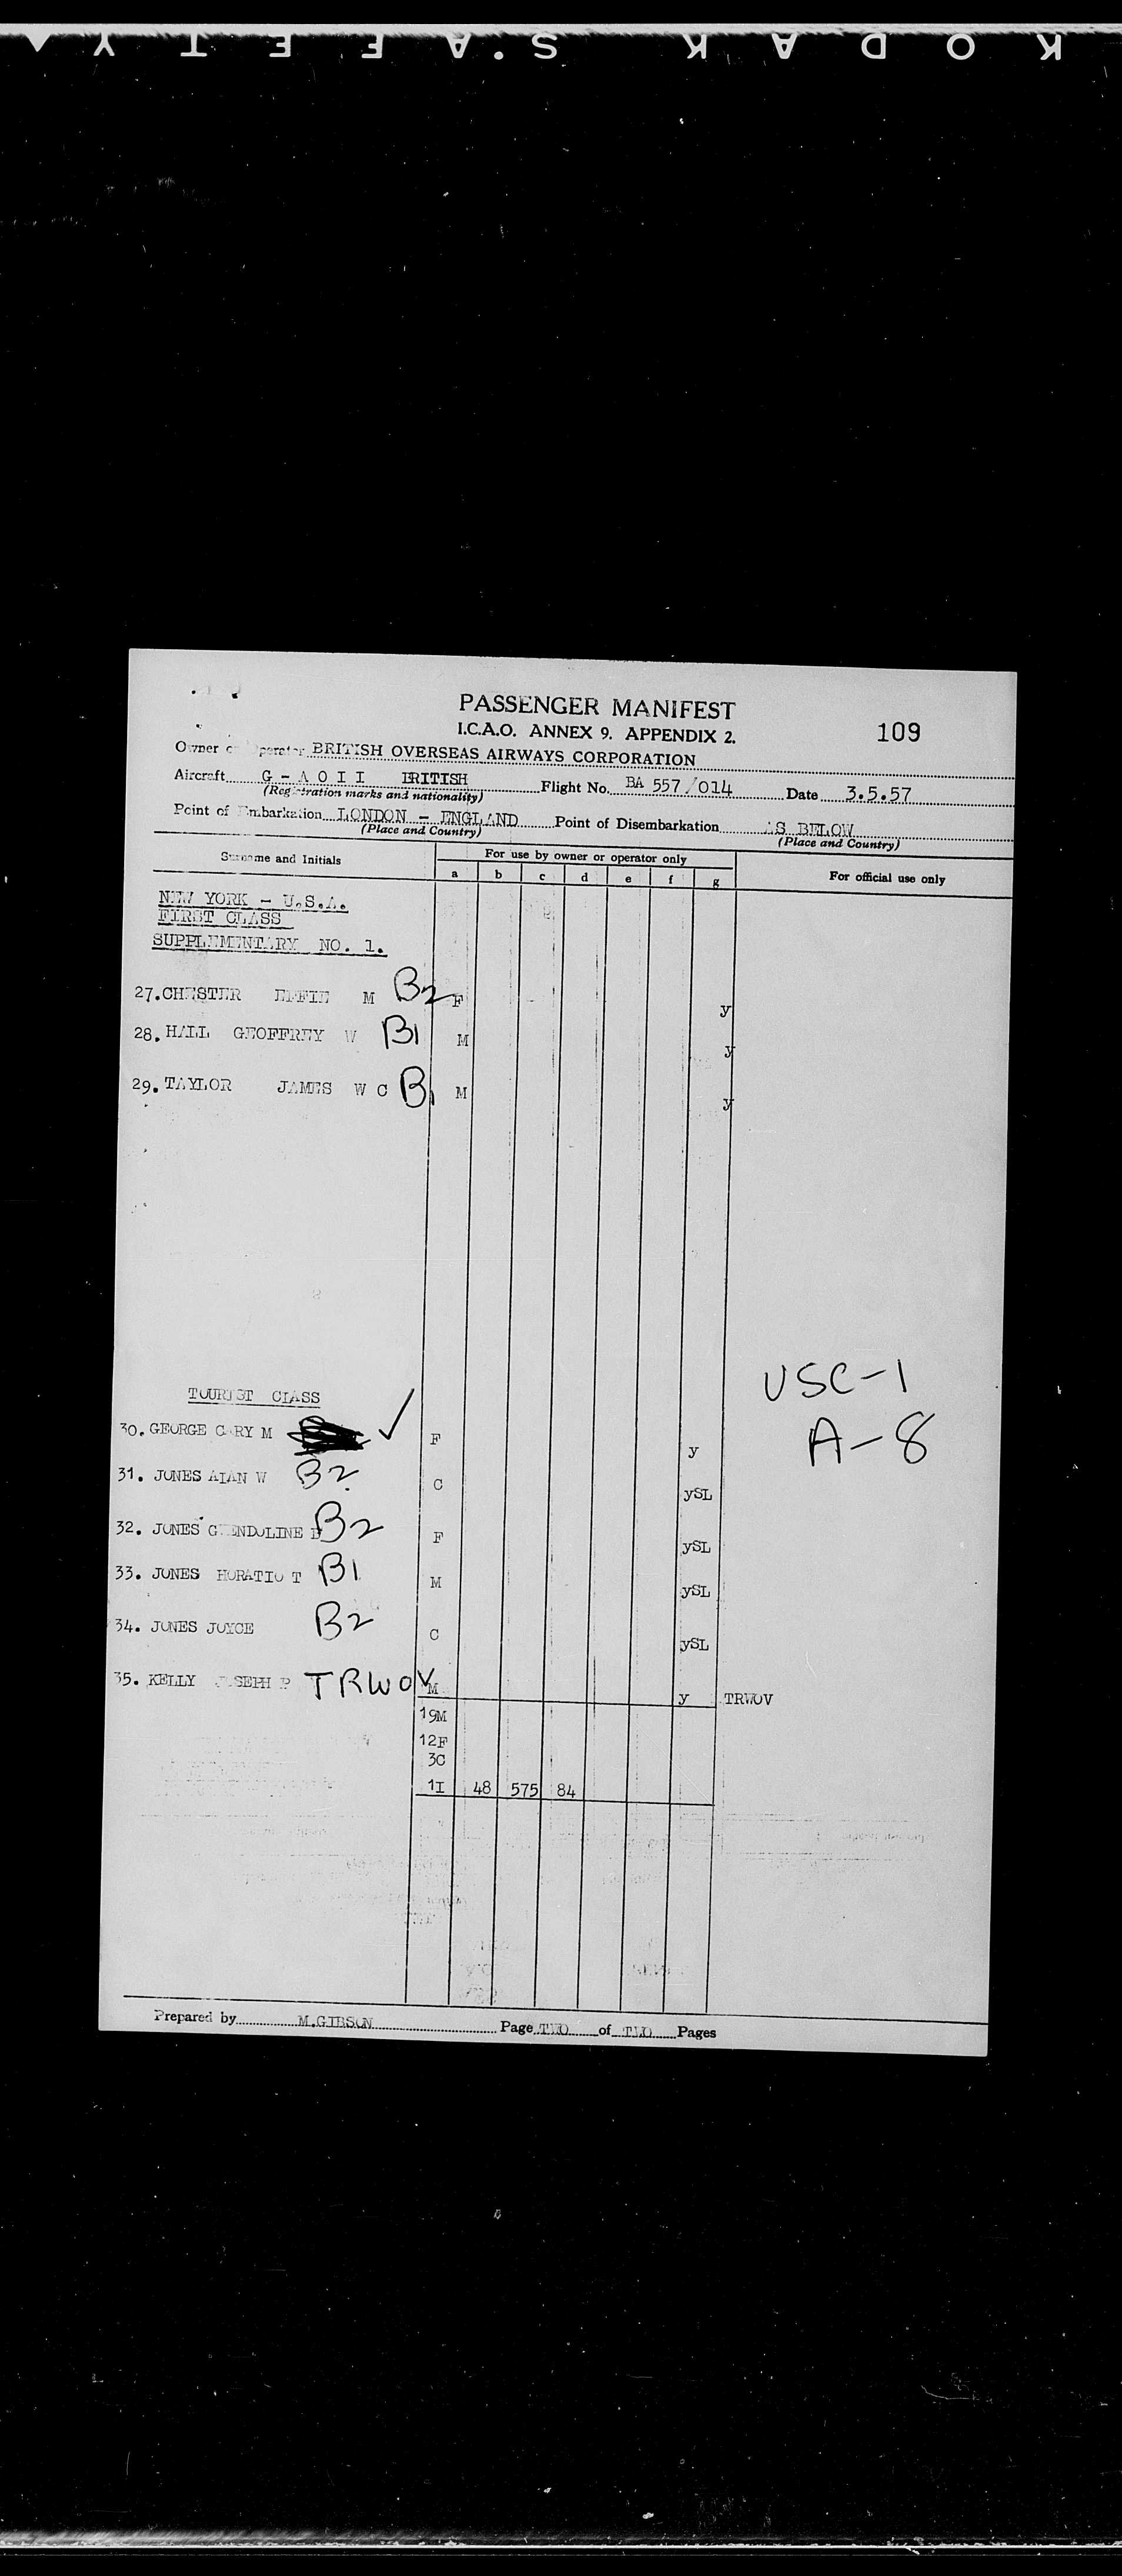 KODAK S.A.F.E.T.Y
PASSENGER MANIFEST
I.C.A.O. ANNEX 9. APPENDIX 2.
109
Owner or Operator BRITISH OVERSEAS AIRWAYS CORPORATION
Aircraft G - A O I I BRITISH Flight No. BA 557/014 Date 3.5.57
(Registration marks and nationality)
Point of Embarkation LONDON - ENGLAND Point of Disembarkation AS BELOW
(Place and Country) (Place and Country)
Surname and Initials For use by owner or operator only For official use only
a b c d e f g
NEW YORK - U.S.A.
FIRST CLASS
SUPPLEMENTARY NO. 1.
27. CHESTER EFFIE M B2 F y
28. HALL GEOFFREY W B1 M y
29. TAYLOR JAMES W C B1 M y
USC-1
TOURIST CLASS
A-8
30. GEORGE GARY M ✓ F y
31. JONES ALAN W B2 C ySL
32. JONES GWENDOLINE B2 F ySL
33. JONES HORATIO T B1 M ySL
34. JONES JOYCE B2 C ySL
35. KELLY JOSEPH P TRWOV M y TRWOV
19M
12F
3C
1I 48 575 84
Prepared by M.GIBSON Page TWO of TWO Pages